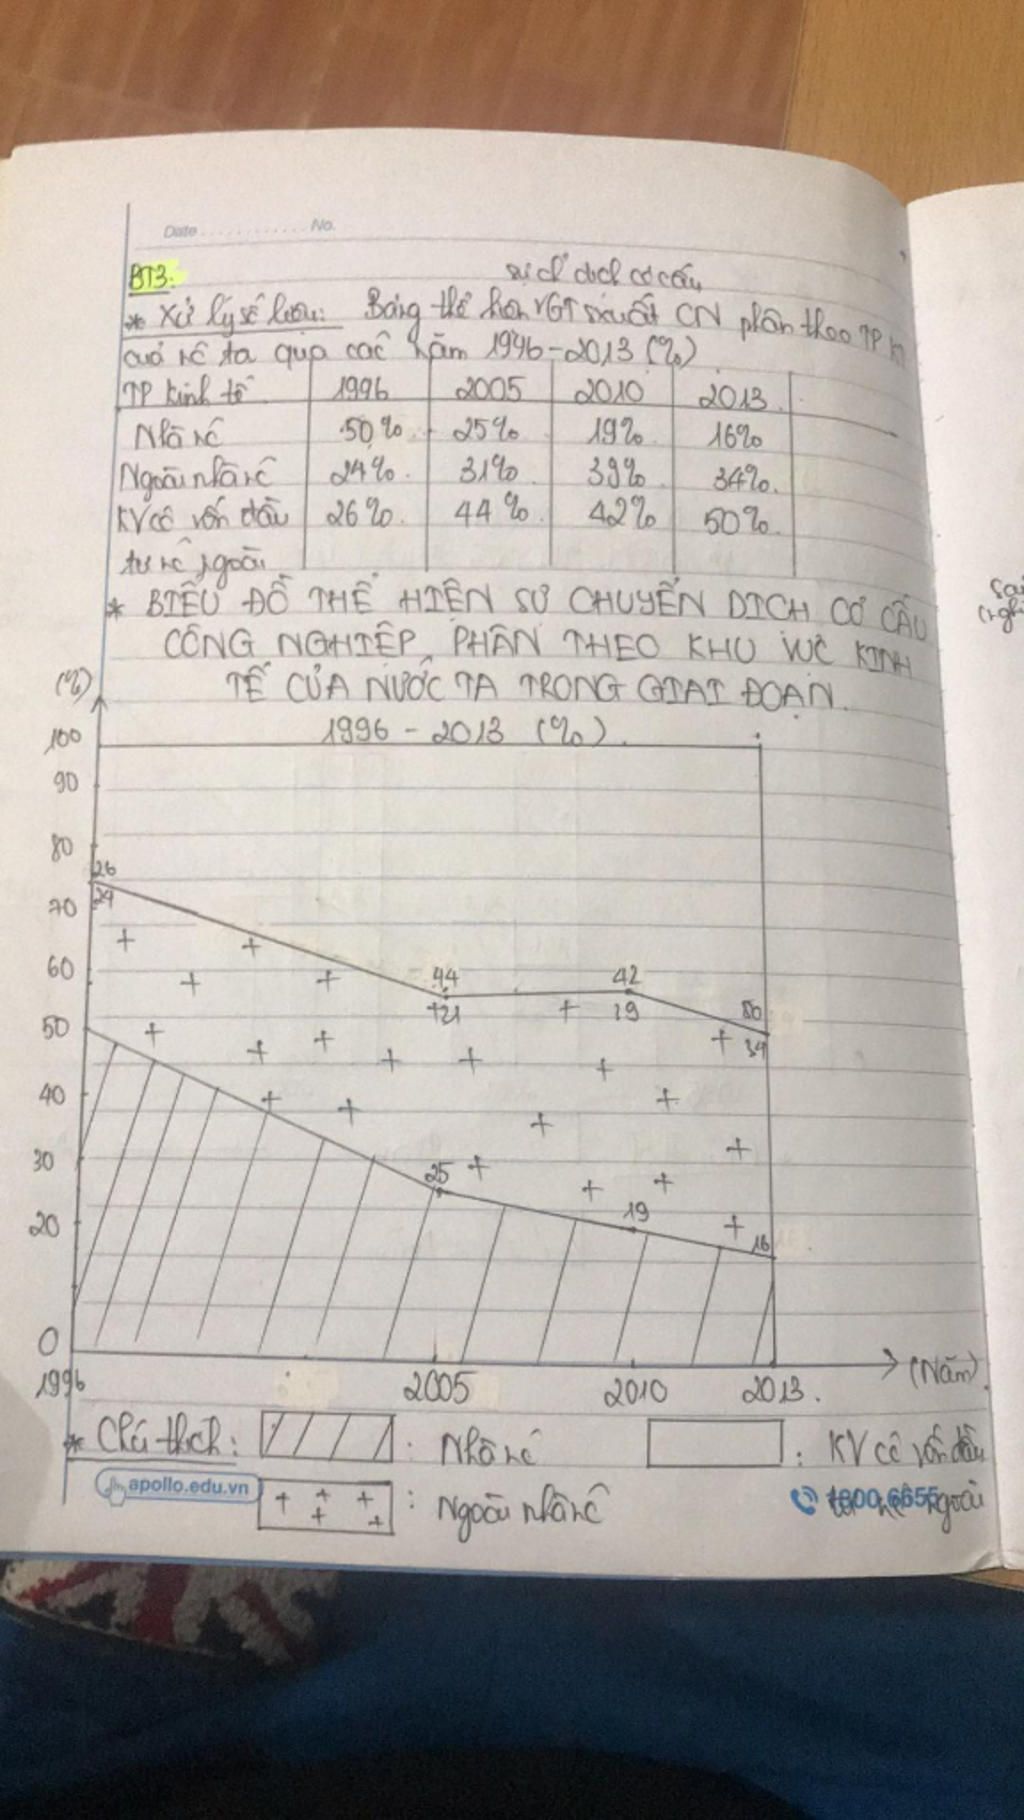 Date ............ No.
BT3.
sự ch' dịch cơ cấu
* Xử lý số liệu: Bảng thể hiện GT sxuất CN phân theo TP KT
của nc ta qua các năm 1996-2013 (%)
TP kinh tế 1996 2005 2010 2013
Nhà nc 50% 25% 19% 16%
Ngoài nhà nc 24% 31% 39% 34%
KV có vốn đầu 26% 44% 42% 50%
tư nc ngoài
* BIỂU ĐỒ THỂ HIỆN SỰ CHUYỂN DỊCH CƠ CẤU
CÔNG NGHIỆP PHÂN THEO KHU VỰC KINH
TẾ CỦA NƯỚC TA TRONG GIAI ĐOẠN
1996 - 2013 (%)
(%)
100
90
80
26
24
70
60
44
42
19
50
50
34
40
30
25
20
19
16
0
1996 2005 2010 2013. (Năm)
* Chú thích: : Nhà nc : KV có vốn đầu
apollo.edu.vn : Ngoài nhà nc tư nc ngoài
1800.6655